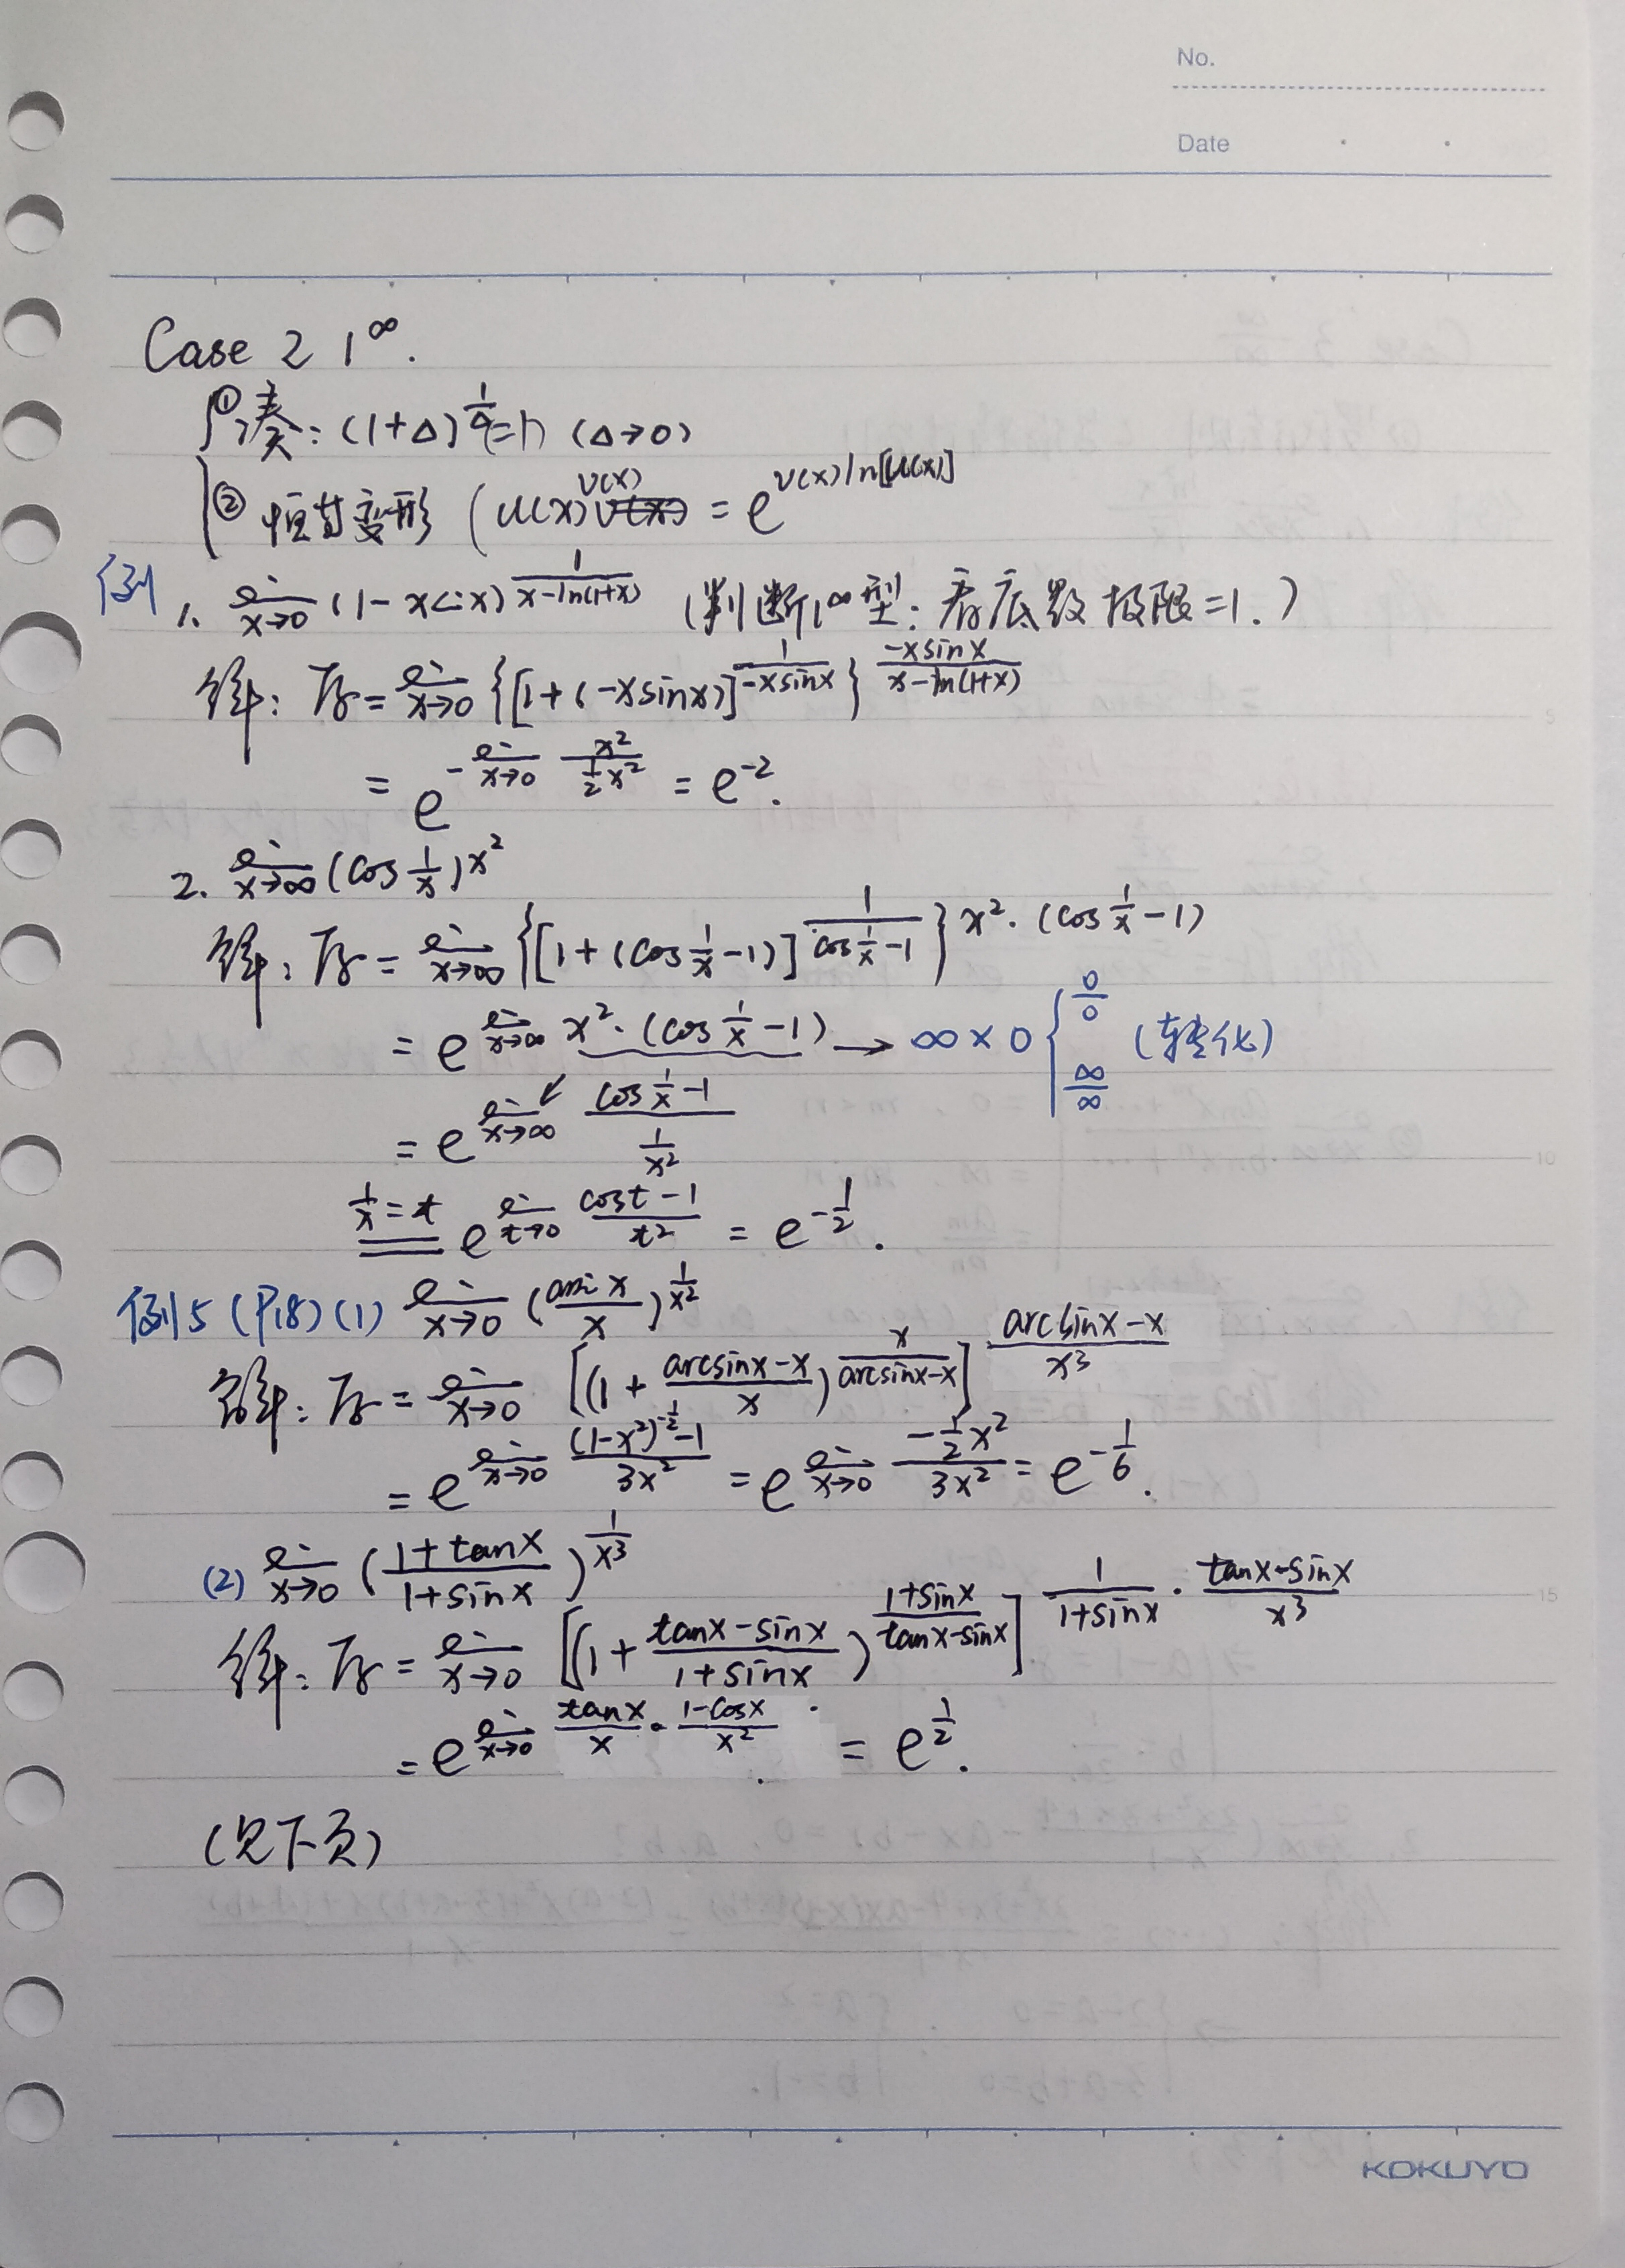 No.
Date
Case 2 1^∞.
① 凑: (1+Δ)^{1/Δ} = (Δ→0)
② 恒等变形 (u(x)^{v(x)} = e^{v(x)ln[u(x)]}
例 1. lim_{x→0} (1-x sin x)^{1/(x-ln(1+x))} (判断1^∞型: 看底数极限=1.)
解: 原 = lim_{x→0} {[1+(-xsinx)]^{1/(-xsinx)}}^{(-xsinx)/(x-ln(1+x))}
= e^{-lim_{x→0} x²/(½x²)} = e^{-2}.
2. lim_{x→∞} (cos 1/x)^{x²}
解: 原 = lim_{x→∞} {[1+(cos 1/x -1)]^{1/(cos 1/x -1)}}^{x²·(cos 1/x -1)}
= e^{lim_{x→∞} x²·(cos 1/x -1)} → ∞×0 { 0/0 ∞/∞ (转化)
= e^{lim_{x→∞} (cos 1/x -1)/(1/x²)}
1/x = t e^{lim_{t→0} (cost-1)/t²} = e^{-1/2}.
例5 (P18) (1) lim_{x→0} (arcsin x / x)^{1/x²}
解: 原 = lim_{x→0} [(1+ (arcsinx-x)/x)^{x/(arcsinx-x)}]^{(arcsinx-x)/x³}
= e^{lim_{x→0} ((1-x²)^{-1/2}-1)/(3x²)} = e^{lim_{x→0} (-½x²)/(3x²)} = e^{-1/6}.
(2) lim_{x→0} ((1+tanx)/(1+sinx))^{1/x³}
解: 原 = lim_{x→0} [(1+ (tanx-sinx)/(1+sinx))^{(1+sinx)/(tanx-sinx)}]^{1/(1+sinx) · (tanx-sinx)/x³}
= e^{lim_{x→0} tanx/x · (1-cosx)/x²} = e^{1/2}.
(见下页)
KOKUYO